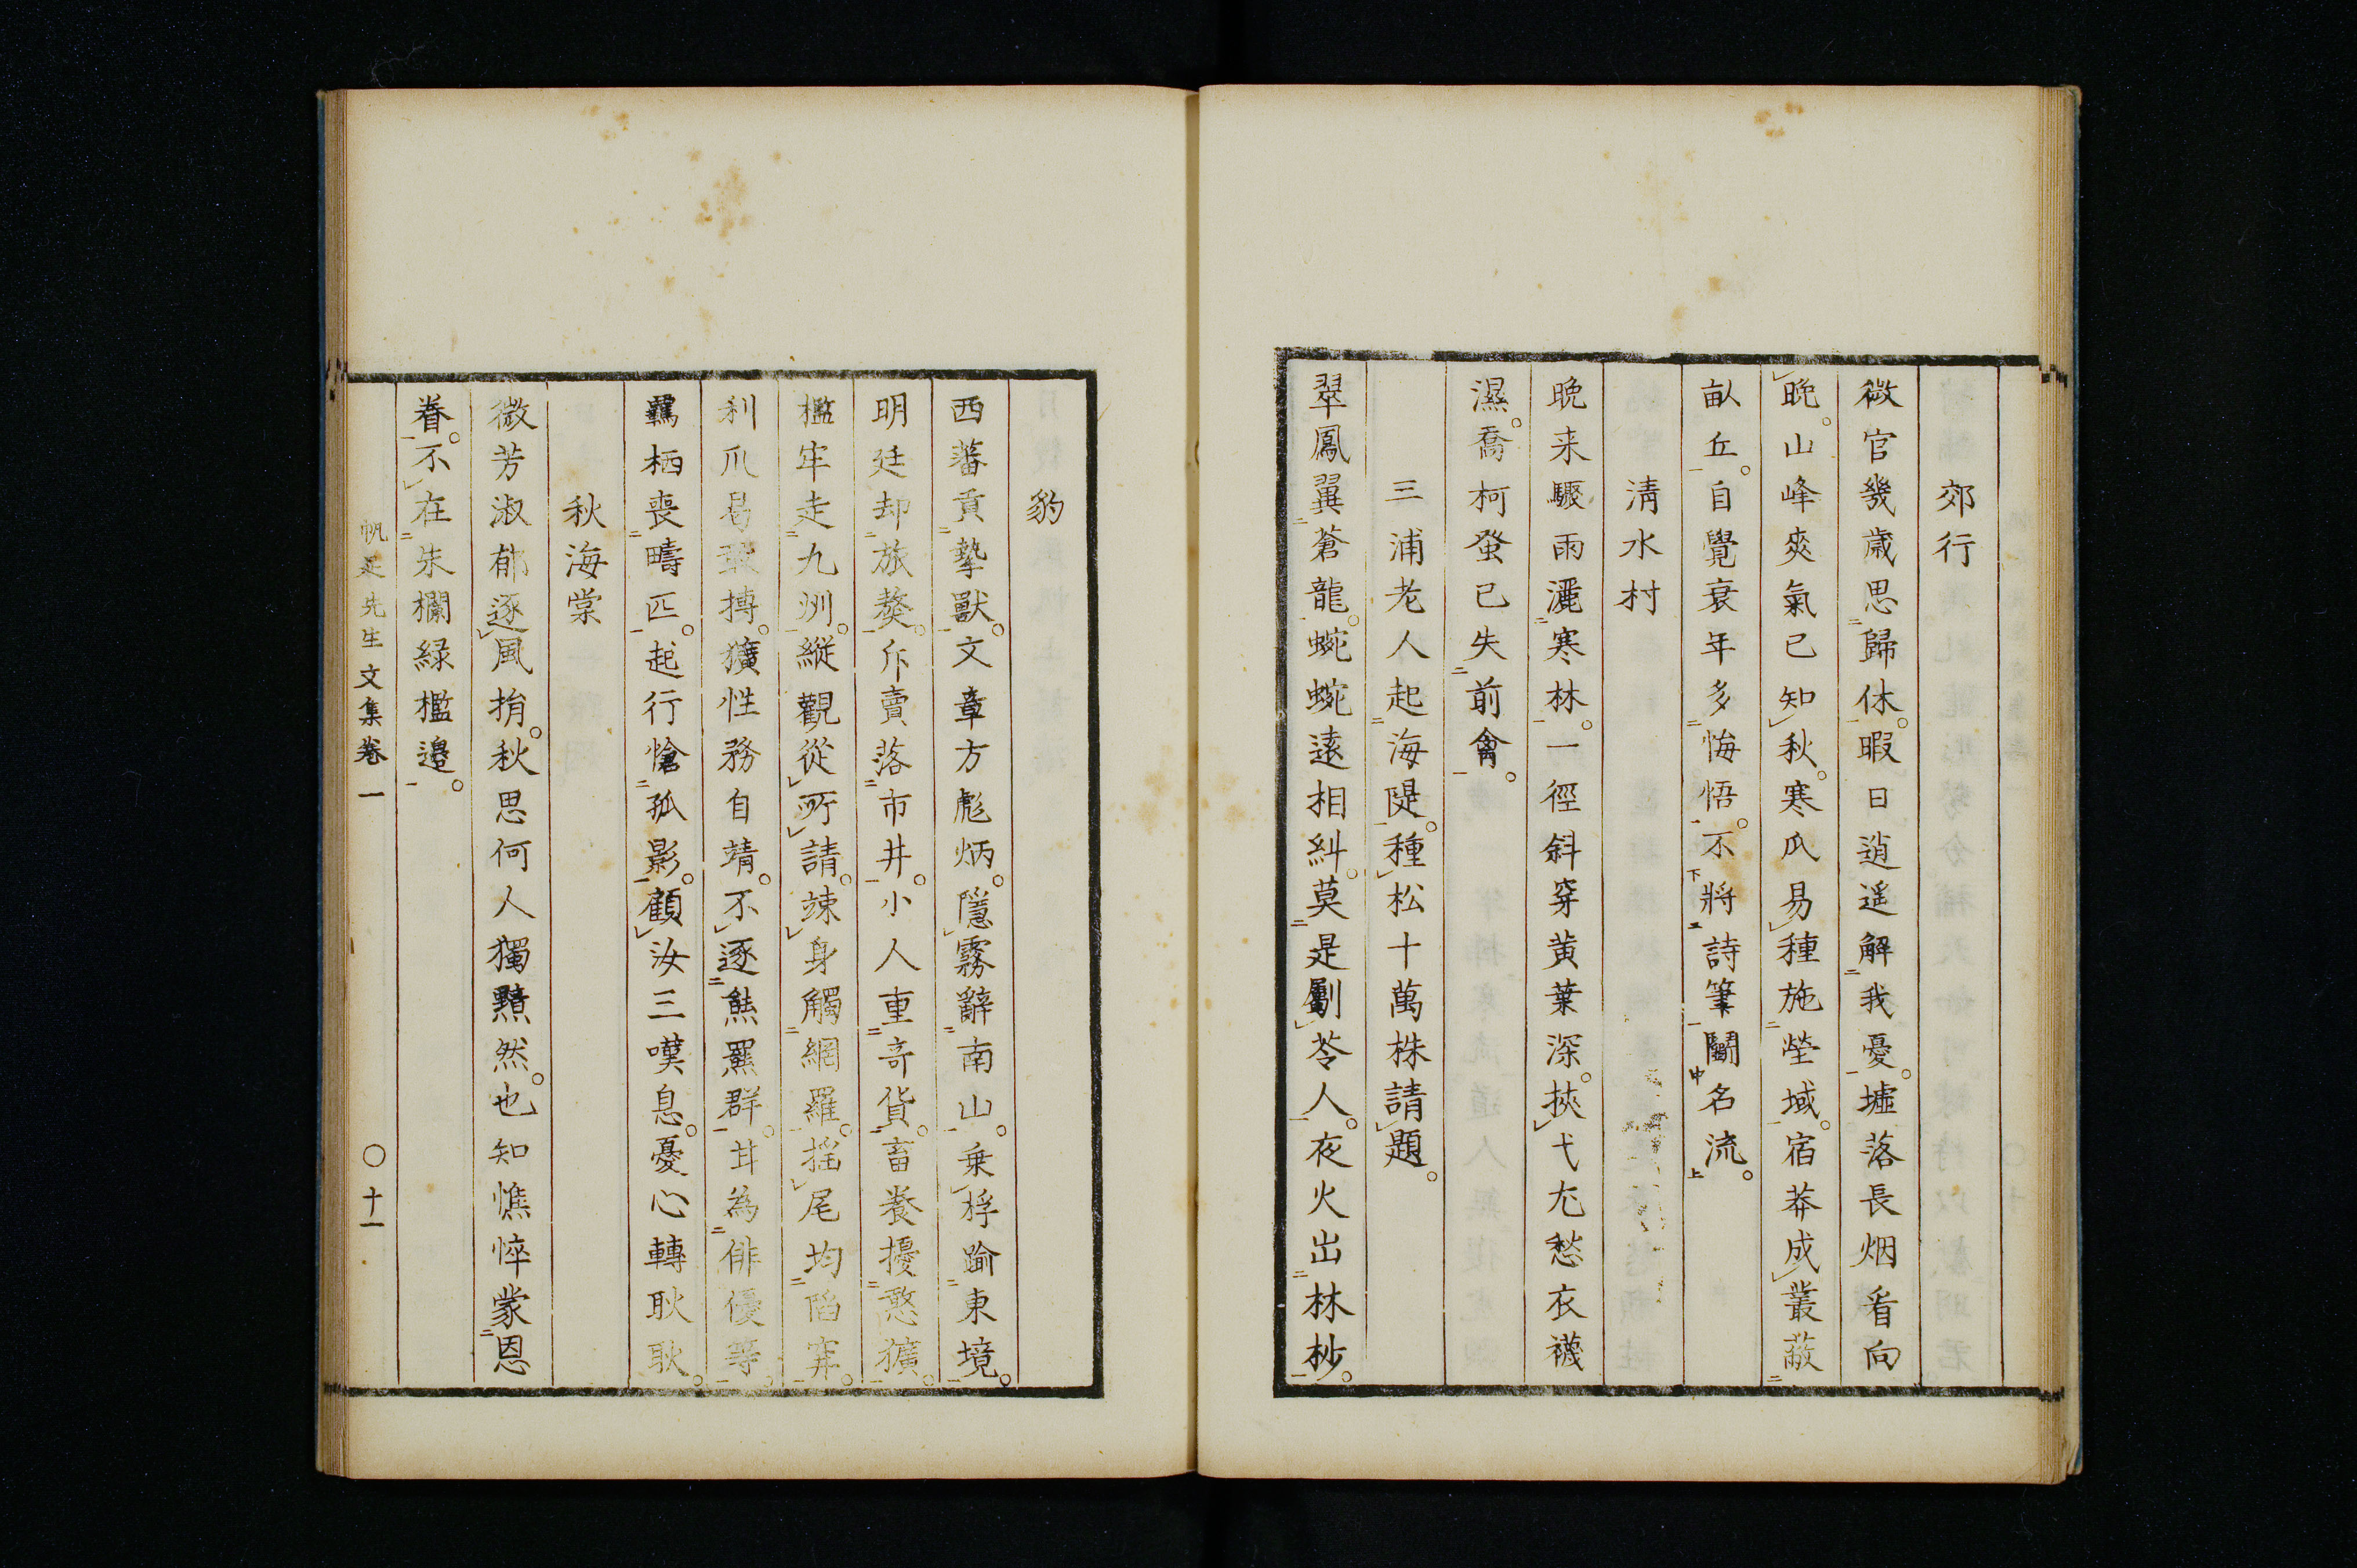 郊行
微官幾歳思歸休。暇日逍遥解我憂。墟落長烟看向
晩。山峰爽氣已知秋。寒瓜易種施塋域。宿莽成叢蔽
畝丘。自覺衰年多悔悟。不將詩筆鬭名流。
淸水村
晩来驟雨灑寒林。一徑斜穿黄葉深。挾弋尤愁衣襪
濕。喬柯發已失前禽。
三浦老人起海隄。種松十萬株請題。
翠鳳翼蒼龍。蜿蜿遠相糾。莫是劚苓人。夜火出林杪。
豹
西蕃貢摯獸。文章方彪炳。隱霧辭南山。乗桴踰東境。
明廷却旅獒。斥賣落市井。小人重奇貨。畜養擾憨獷。
檻牢走九洲。縱觀從所請。竦身觸網羅。揺尾均陷穽。
利爪曷敢搏。獷性務自靖。不逐熊羆群。甘為俳優等。
羈栖喪疇匹。起行愴孤影。顧汝三嘆息。憂心轉耿耿。
秋海棠
微芳淑郁逐風捐。秋思何人獨黯然。也知憔悴蒙恩
眷。不在朱欄緑檻邉。
帆足先生文集巻一 〇十一